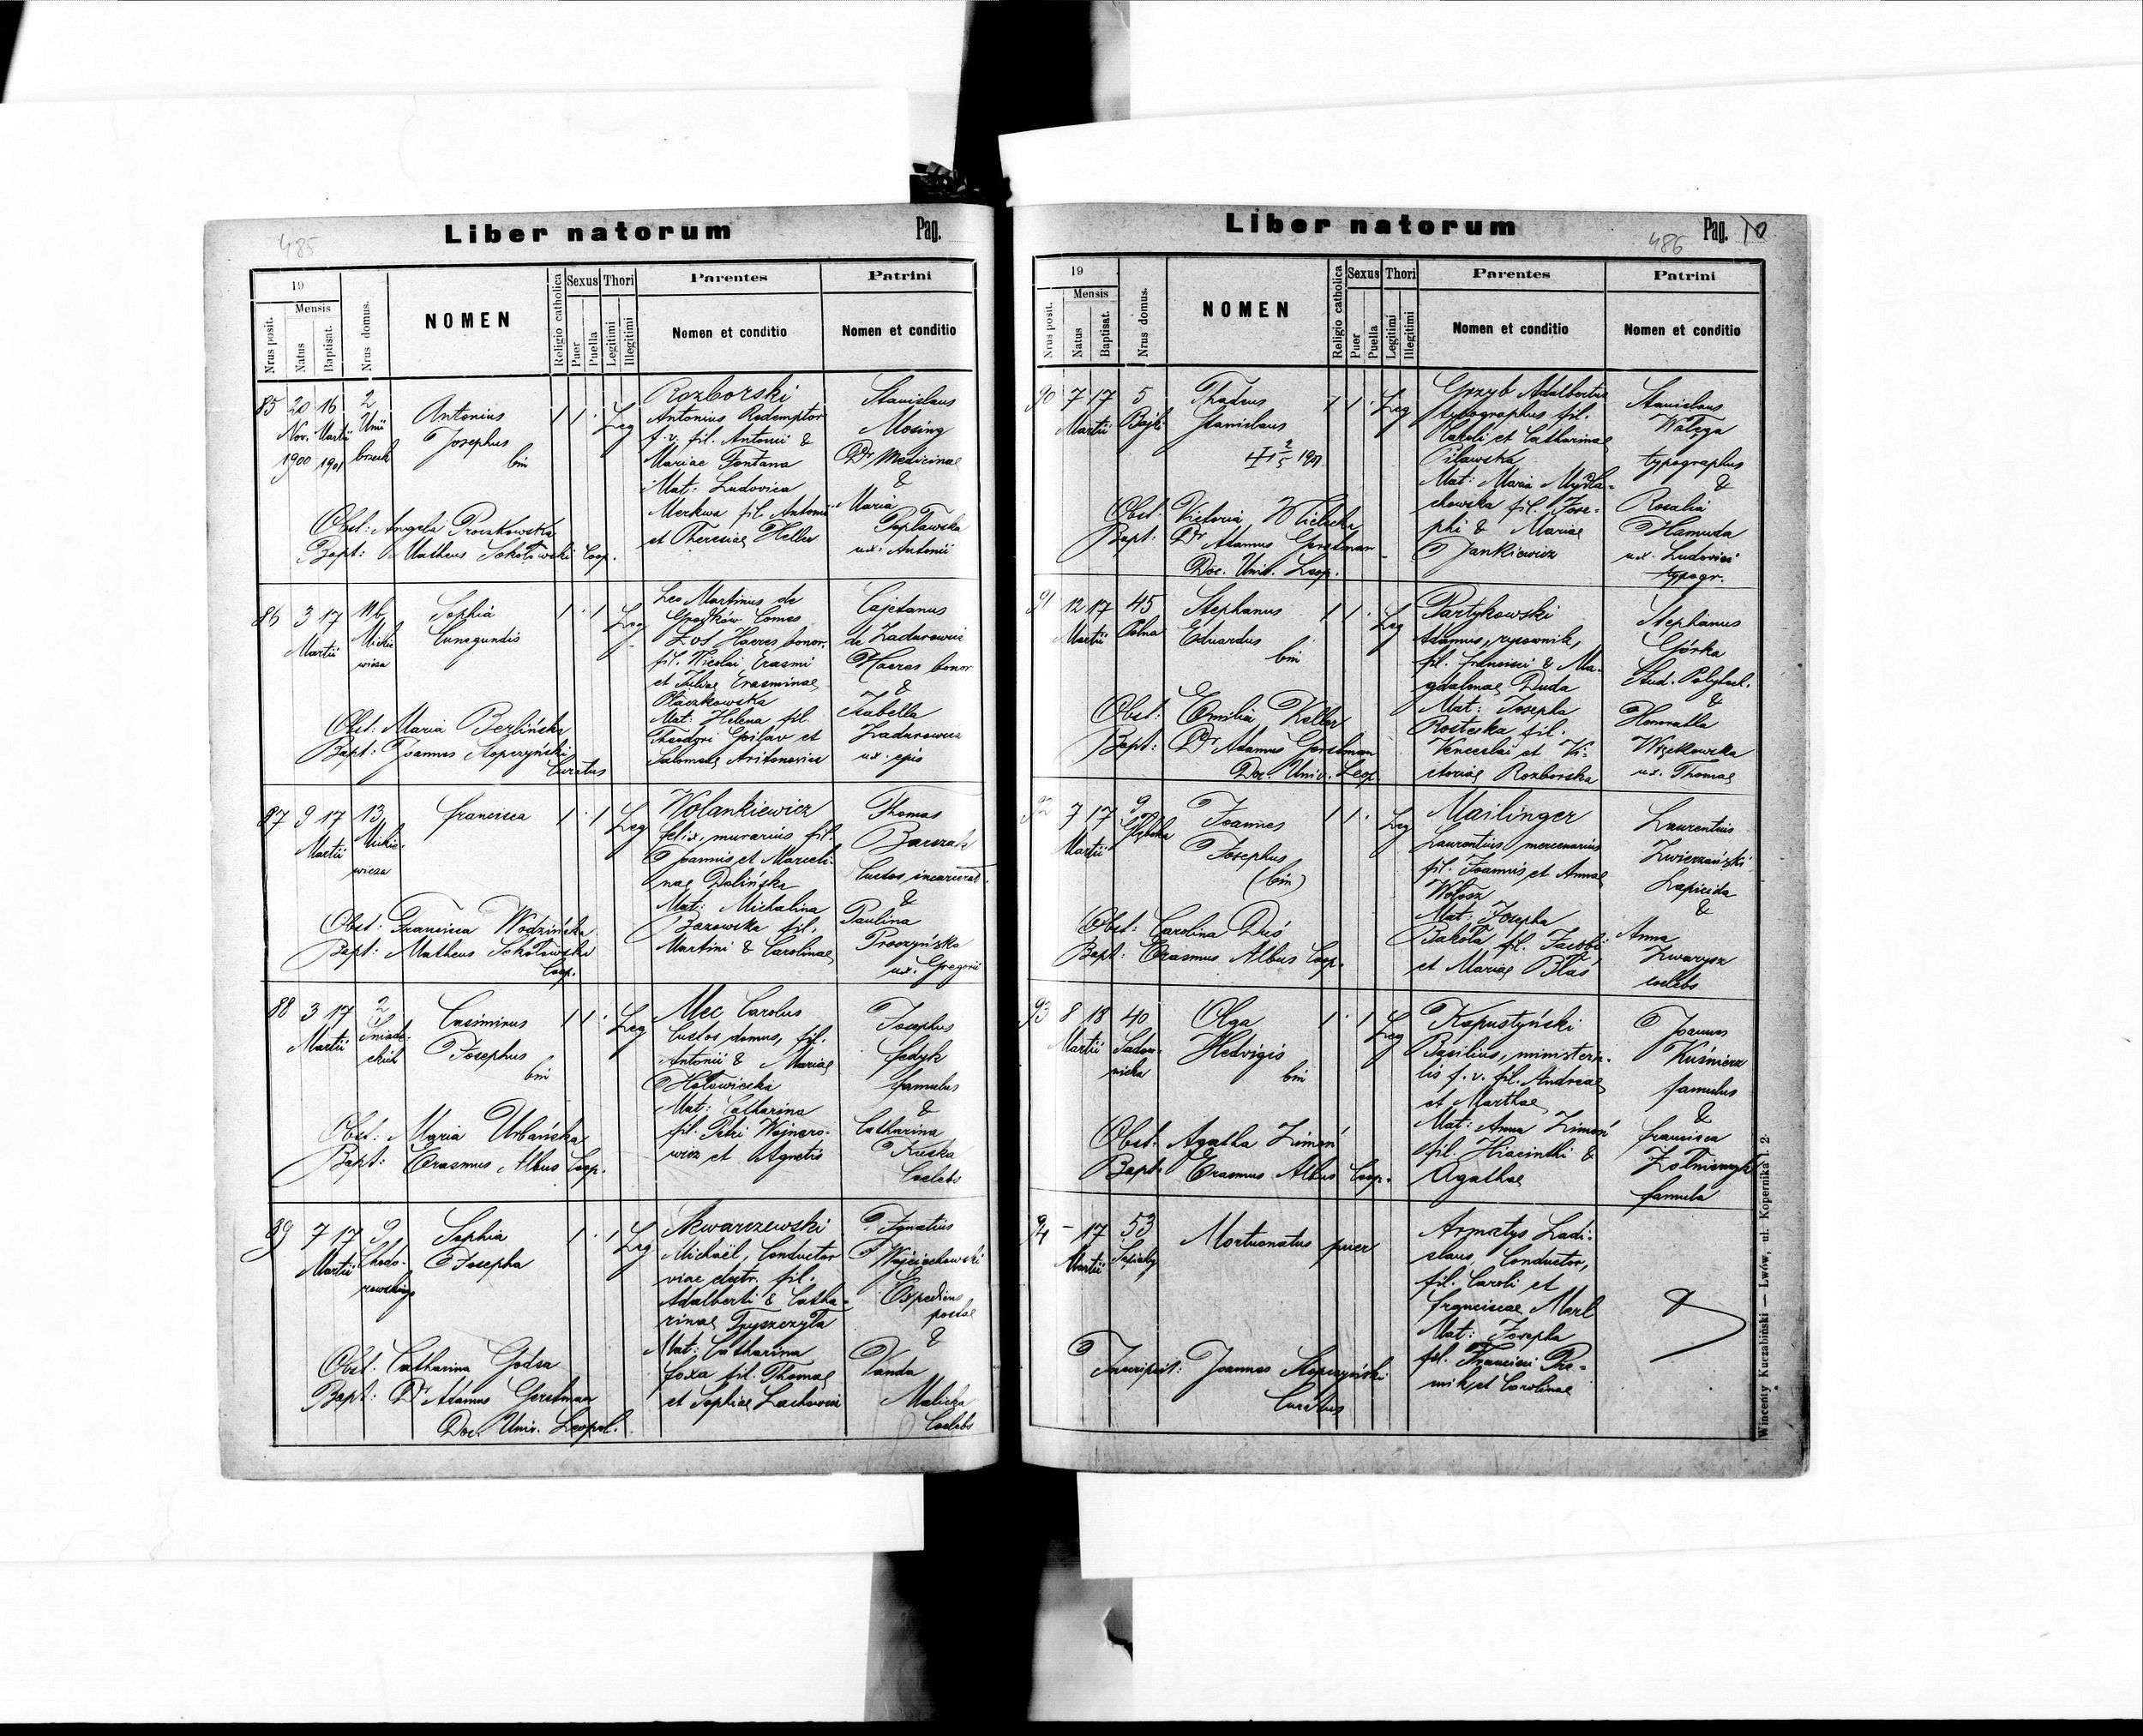 485
Liber natorum
Pag.
19
Mensis
Nrus posit.
Natus
Baptisat.
Nrus domus.
NOMEN
Religio catholica
Sexus
Puer
Puella
Thori
Legitimi
Illegitimi
Parentes
Nomen et conditio
Patrini
Nomen et conditio
85 20 16 2
Nov. Martii Unii
1900 1901 brzesk
Antonius
Josephus
bin
1 1 · Leg
Rozborski
Antonius Redemptor
f. v. fil. Antonii &
Mariae Fontana
Mat: Ludovica
Merkwa fil. Antonii
et Theresiae Heller
Stanislaus
Mosing
Dr Medicinae
&
Maria
Popławska
ux. Antonii
Obst: Angela Proczkowska
Bapt: Matheus Sokołowski Coop.
86 3 17 11b
Martii Mickie
wicza
Sophia
Cunegundis
1 · 1 Leg
Leo Martinus de
Grodków Comes
Łoś Haeres bonor.
fil. Nicolai Erasmi
et Juliae Erasminae
Płaczkowska
Mat: Helena fil.
Theodori Goilav et
Salomeae Aritonovici
Cajetanus
de Zadurowicz
Haeres bonor
&
Isabella
Zadurowicz
ux. ejus
Obst: Maria Berlińska
Bapt: Joannes Kopczyński
Curatus
87 9 17 13
Martii Mickie-
wicza
Francisca
1 · 1 Leg
Wolankiewicz
Felix, murarius fil.
Joannis et Marceli-
nae Dolińska
Mat: Michalina
Bazowska fil.
Martini & Carolinae
Thomas
Barszak
Custos incarcerat.
&
Paulina
Proczyńska
ux. Gregorii
Obst: Francisca Wodzińska
Bapt: Matheus Sokołowski
Coop.
88 3 17 2
Martii Śniade-
ckich
Casimirus
Josephus
bin
1 1 · Leg
Mec Carolus
Custos domus, fil.
Antonii & Mariae
Hołowiecka
Mat: Catharina
fil. Petri Wojnaro-
wicz et Agnetis
Josephus
Fedyk
famulus
&
Catharina
Kuska
Coelebs
Obst: Maria Urbańska
Bapt: Erasmus Albus Coop.
89 7 17 9
Martii Chodo-
rowskiego
Sophia
Josepha
1 · 1 Leg
Skwarczewski
Michaël, Conductor
viae elect. fil.
Adalberti & Catha-
rinae Tryszczyła
Mat: Catharina
Foxa fil. Thomae
et Sophiae Lachowicz
Ignatius
Wojciechowski
Expediens
postae
&
Vanda
Malicka
Coelebs
Obst: Catharina Godsa
Bapt: Dr Adamus Gerstman
Doc. Univ. Leopol.
486
Liber natorum
Pag. 10
19
Mensis
Nrus posit.
Natus
Baptisat.
Nrus domus.
NOMEN
Religio catholica
Sexus
Puer
Puella
Thori
Legitimi
Illegitimi
Parentes
Nomen et conditio
Patrini
Nomen et conditio
90 7 17 5
Martii Bajki
Thadeus
Stanislaus
1901
1 1 · Leg
Grzyb Adalbertus
typographus fil.
Caroli et Catharinae
Pilawska
Mat: Maria Mydla-
chowska fil. Jose-
phi & Mariae
Jankiewicz
Stanislaus
Walęga
typographus
&
Rosalia
Hamuda
ux. Ludovici
typogr.
Obst: Victoria Wielicka
Bapt: Dr Adamus Gerstman
Doc. Univ. Leop.
91 12 17 45
Martii Polna
Stephanus
Eduardus
bin
1 1 · Leg
Partykowski
Adamus, rysownik,
fil. Francisci & Ma-
gdalenae Duda
Mat: Josepha
Rosteska fil.
Venceslai et Vi-
ctoriae Rozborska
Stephanus
Górka
Stud. Polytech.
&
Honoratta
Wrzetkowska
ux. Thomae
Obst: Emilia Keller
Bapt: Dr Adamus Gerstman
Doc. Univ. Leop.
92 7 17 9
Martii Głęboka
Joannes
Josephus
(bin)
1 1 · Leg
Mailinger
Laurentius mercenarius
fil. Joannis et Annae
Wołosz
Mat: Josepha
Bakota fil. Jacobi
et Mariae Blaś
Laurentius
Zwierzański
Lapicida
&
Anna
Zwarysz
coelebs
Obst: Carolina Duś
Bapt: Erasmus Albus Coop.
93 8 18 40
Martii Sadow-
nicka
Olga
Hedvigis
bin
1 · 1 Leg
Kapustyński
Basilius, ministeria-
lis f. v. fil. Andreae
et Marthae
Mat: Anna Zimoń
fil. Hiacinthi &
Agathae
Joannes
Kuśnierz
famulus
&
Francisca
Żołnierczyk
famula
Obst: Agatha Zimoń
Bapt: Erasmus Albus Coop.
94 – 17 53
Martii Sapiehy
Mortuonatus puer
Armatys Ladi-
slaus, Conductor,
fil. Caroli et
Franciscae Marl
Mat: Josepha
fil. Francisci Pre-
nik et Carolinae
Inscripsit: Joannes Kopczyński
Curatus
Wincenty Kuczabiński — Lwów, ul. Kopernika l. 2.